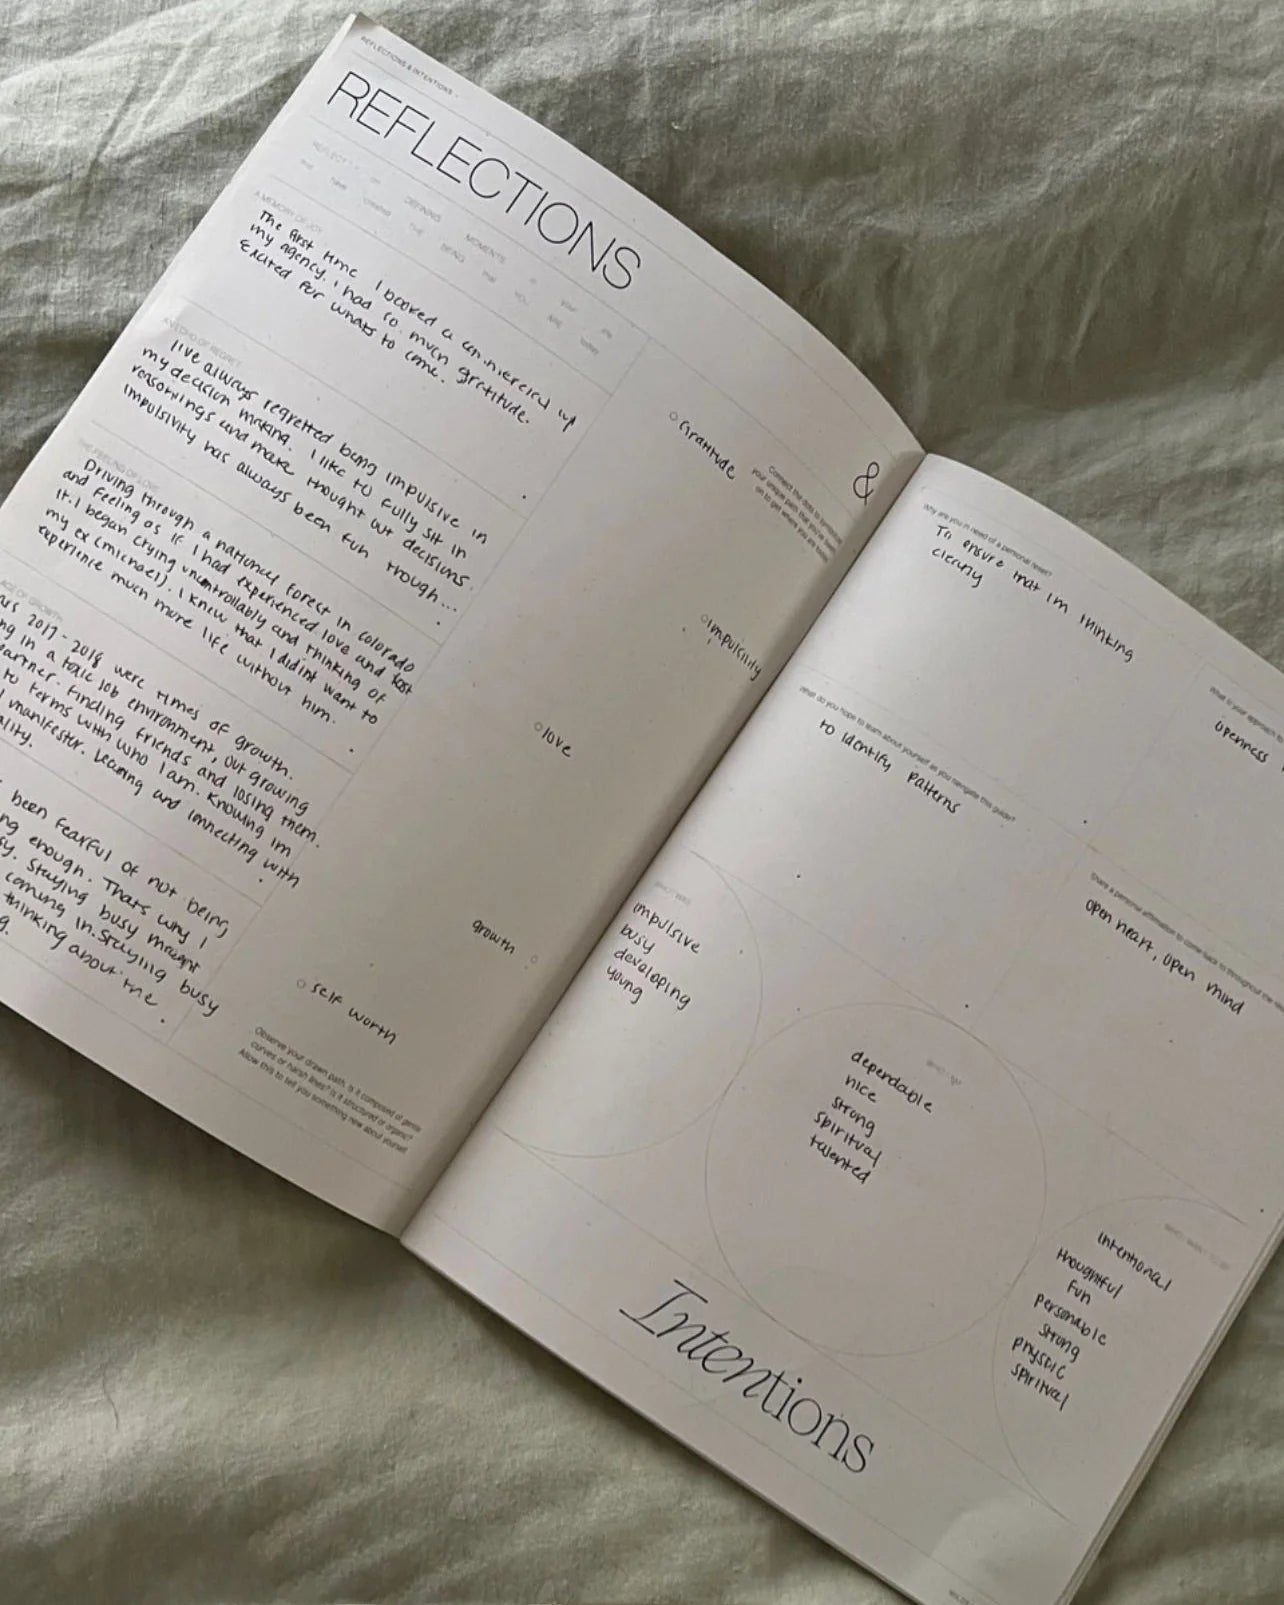 REFLECTIONS & INTENTIONS
REFLECTIONS
REFLECT ON DEFINING MOMENTS in your life
that have created THE BEING that YOU ARE today
A MEMORY OF JOY
The first time I booked a commercial w/
my agency. I had so much gratitude.
Excited for whats to come.
AN ECHO OF REGRET
I've always regretted being impulsive in
my decision making. I like to fully sit in
reasonings and make thought out decisions.
Impulsivity has always been fun though...
THE FEELING OF LOVE
Driving through a national forest in colorado
and feeling as if I had experienced love and lost
it. I began crying uncontrollably and thinking of
my ex (michael). I knew that I didint want to
experience much more life without him.
AGE OF GROWTH
2017-2018 were times of growth.
in a toxic job environment, out growing
partner. Finding friends and losing them.
to terms with who I am. Knowing im
manifestor. Learning and connecting with
been fearful of not being
enough. Thats why I
Staying busy meant
coming in. Staying busy
thinking about the
Gratitude
&
Connect the dots to
your unique path, that
on to get where you are
impulsility
love
growth
self worth
Observe your drawn path. Is it composed of gentle
curves or harsh lines? Is it structured or organic?
Allow this to tell you something new about yourself.
Why are you in need of a personal reset?
To ensure that im thinking
clearly
What is your approach to
openness
What do you hope to learn about yourself as you navigate this guide?
to identify patterns
Share a personal affirmation to come back to throughout the
open heart, open mind
WHO I WAS
impulsive
busy
developing
young
WHO I AM
dependable
nice
strong
spiritual
talented
WHO I WANT TO BE
intentional
thoughtful
fun
personable
strong
physcic
spiritual
Intentions